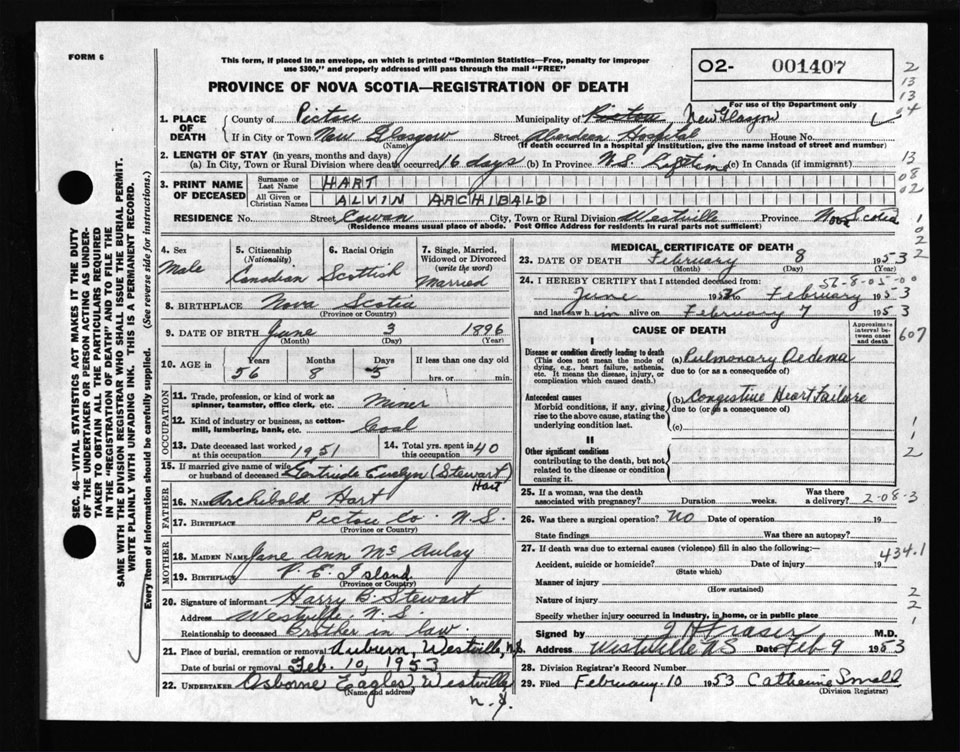 FORM 6
This form, if placed in an envelope, on which is printed "Dominion Statistics—Free, penalty for improper
use $300," and properly addressed will pass through the mail "FREE"
O2- 001407
PROVINCE OF NOVA SCOTIA—REGISTRATION OF DEATH
For use of the Department only
1. PLACE OF DEATH
County of Pictou Municipality of Pictou New Glasgow
If in City or Town New Glasgow Street Aberdeen Hospital House No.
(Name) (If death occurred in a hospital or institution, give the name instead of street and number)
2. LENGTH OF STAY (in years, months and days)
(a) In City, Town or Rural Division where death occurred 16 days (b) In Province N.S. Lifetime (c) In Canada (if immigrant)
3. PRINT NAME OF DECEASED
Surname or Last Name HART
All Given or Christian Names ALVIN ARCHIBALD
RESIDENCE No. Street Cowan City, Town or Rural Division Westville Province Nova Scotia
(Residence means usual place of abode. Post Office Address for residents in rural parts not sufficient)
4. Sex Male
5. Citizenship (Nationality) Canadian
6. Racial Origin Scottish
7. Single, Married, Widowed or Divorced (write the word) Married
8. BIRTHPLACE Nova Scotia
(Province or Country)
9. DATE OF BIRTH June 3 1896
(Month) (Day) (Year)
10. AGE in Years 56 Months 8 Days 5 If less than one day old
hrs. or min.
OCCUPATION
11. Trade, profession, or kind of work as spinner, teamster, office clerk, etc. Miner
12. Kind of industry or business, as cotton-mill, lumbering, bank, etc. Coal
13. Date deceased last worked at this occupation 1951
14. Total yrs. spent in this occupation 40
15. If married give name of wife or husband of deceased Gertrude Evelyn (Stewart) Hart
FATHER
16. NAME Archibald Hart
17. BIRTHPLACE Pictou Co. N.S.
(Province or Country)
MOTHER
18. MAIDEN NAME Jane Ann McAulay
19. BIRTHPLACE P.E. Island
(Province or Country)
20. Signature of informant Harry B. Stewart
Address Westville, N.S.
Relationship to deceased Brother in law.
21. Place of burial, cremation or removal Auburn, Westville, N.S.
Date of burial or removal Feb. 10, 1953
22. UNDERTAKER Osborne Eagles Westville
(Name and address)
N.S.
MEDICAL CERTIFICATE OF DEATH
23. DATE OF DEATH February 8 1953
(Month) (Day) (Year)
24. I HEREBY CERTIFY that I attended deceased from: 56-8-05-0
June 195 to February 1953
and last saw him alive on February 7 1953
CAUSE OF DEATH
Approximate interval between onset and death
I
Disease or condition directly leading to death (a) Pulmonary Oedema
(This does not mean the mode of dying, e.g., heart failure, asthenia, etc. It means the disease, injury, or complication which caused death.)
due to (or as a consequence of)
Antecedent causes (b) Congestive Heart Failure
Morbid conditions, if any, giving rise to the above cause, stating the underlying condition last.
due to (or as a consequence of)
(c)
II
Other significant conditions
contributing to the death, but not related to the disease or condition causing it.
25. If a woman, was the death associated with pregnancy? Duration weeks. Was there a delivery? 2-08-3
26. Was there a surgical operation? No Date of operation 19
State findings Was there an autopsy?
27. If death was due to external causes (violence) fill in also the following:
434.1
Accident, suicide or homicide? Date of injury 19
(State which)
Manner of injury
(How sustained)
Nature of injury
Specify whether injury occurred in industry, in home, or in public place
Signed by Fraser M.D.
Address Westville NS Date Feb 9 1953
28. Division Registrar's Record Number
29. Filed February 10 1953 Catherine Small
(Division Registrar)
2
13
13
04
13
08
02
1
0
2
2
607
1
1
2
2
2
1
SEC. 46—VITAL STATISTICS ACT MAKES IT THE DUTY
OF THE UNDERTAKER OR PERSON ACTING AS UNDER-
TAKER TO OBTAIN ALL THE PARTICULARS REQUIRED
IN THE "REGISTRATION OF DEATH" AND TO FILE THE
SAME WITH THE DIVISION REGISTRAR WHO SHALL ISSUE THE BURIAL PERMIT.
WRITE PLAINLY WITH UNFADING INK. THIS IS A PERMANENT RECORD.
Every item of information should be carefully supplied. (See reverse side for instructions.)